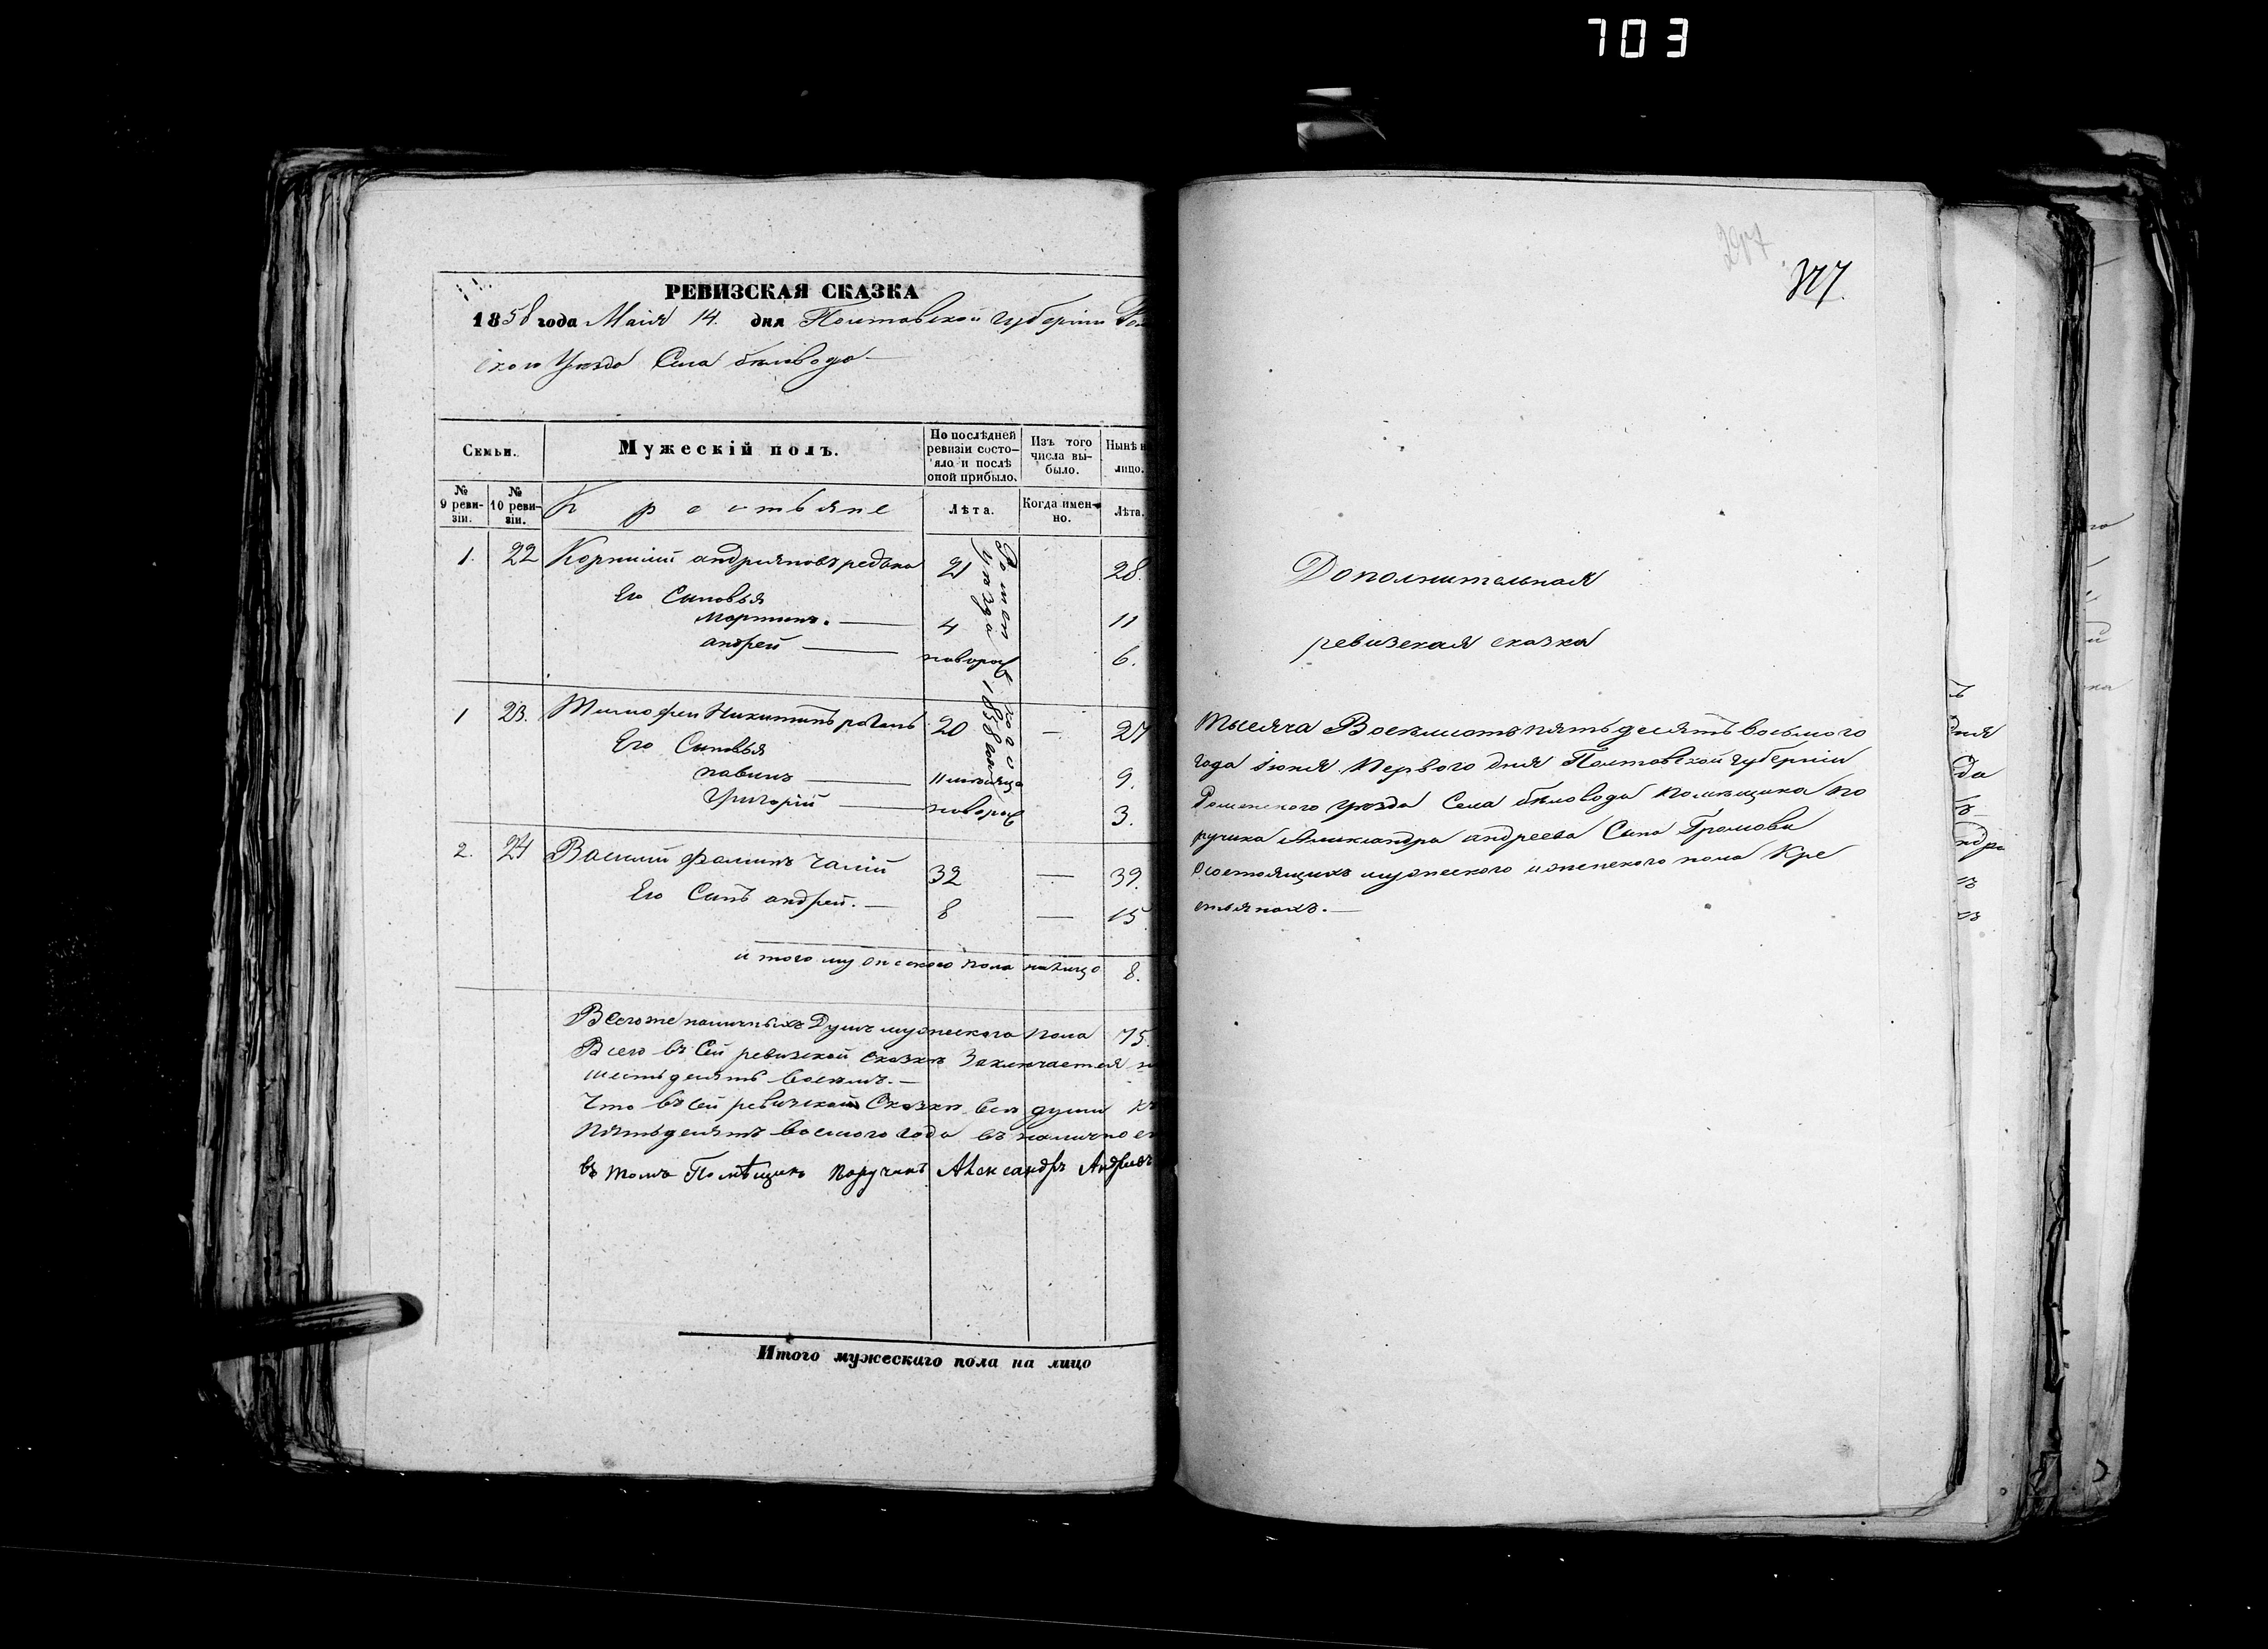 703
РЕВИЗСКАЯ СКАЗКА
1858 года Маія 14. дня Полтавской губерніи Ром
скаго Уезда Села біловода
Семьи.
Мужескій полъ.
По послѣдней ревизіи состо- яло и послѣ оной прибыло.
Изъ того числа вы- было.
Нынѣ н лицо.
№ 9 реви- зіи.
№ 10 реви- зіи.
Крестьяне
Лѣта.
Когда имен- но.
Лѣта.
1. 22 Корнилій андріяновъ редька 21 28.
Его Сыновья
мартинъ. — 4 11
андрей — новорож 6.
1 23. Тимофей Никитинъ 20 — 27
Его Сыновья
павилъ — 11 месяца 9.
Григорій — новорож 3.
2. 24 Василій фоминъ Чалій 32 — 39.
Его Сынъ андрей. — 8 — 15
итого мужескаго пола налицо 8.
Всегоже наличныхъ Душъ мужескаго пола 75.
Всего въ Сей ревизской сказки Заключается
шестьдесятъ восемъ. —
Что въ сей ревизской Сказки все души
Пятьдесятъ восмого года въ налично
въ томъ Помѣщикъ Поручикъ Александръ Андреевъ
Итого мужескаго пола на лицо
297
Дополнительная
ревизская сказка
Тысяча Восемсотъ пятьдесятъ восьмого
года іюня Первого дня Полтавской губерніи
Роменского уезда Села біловода помещика по
ручика Александра андреева Сына Громова
О состоящихъ мужеского и женского пола Кре
стьянахъ. —